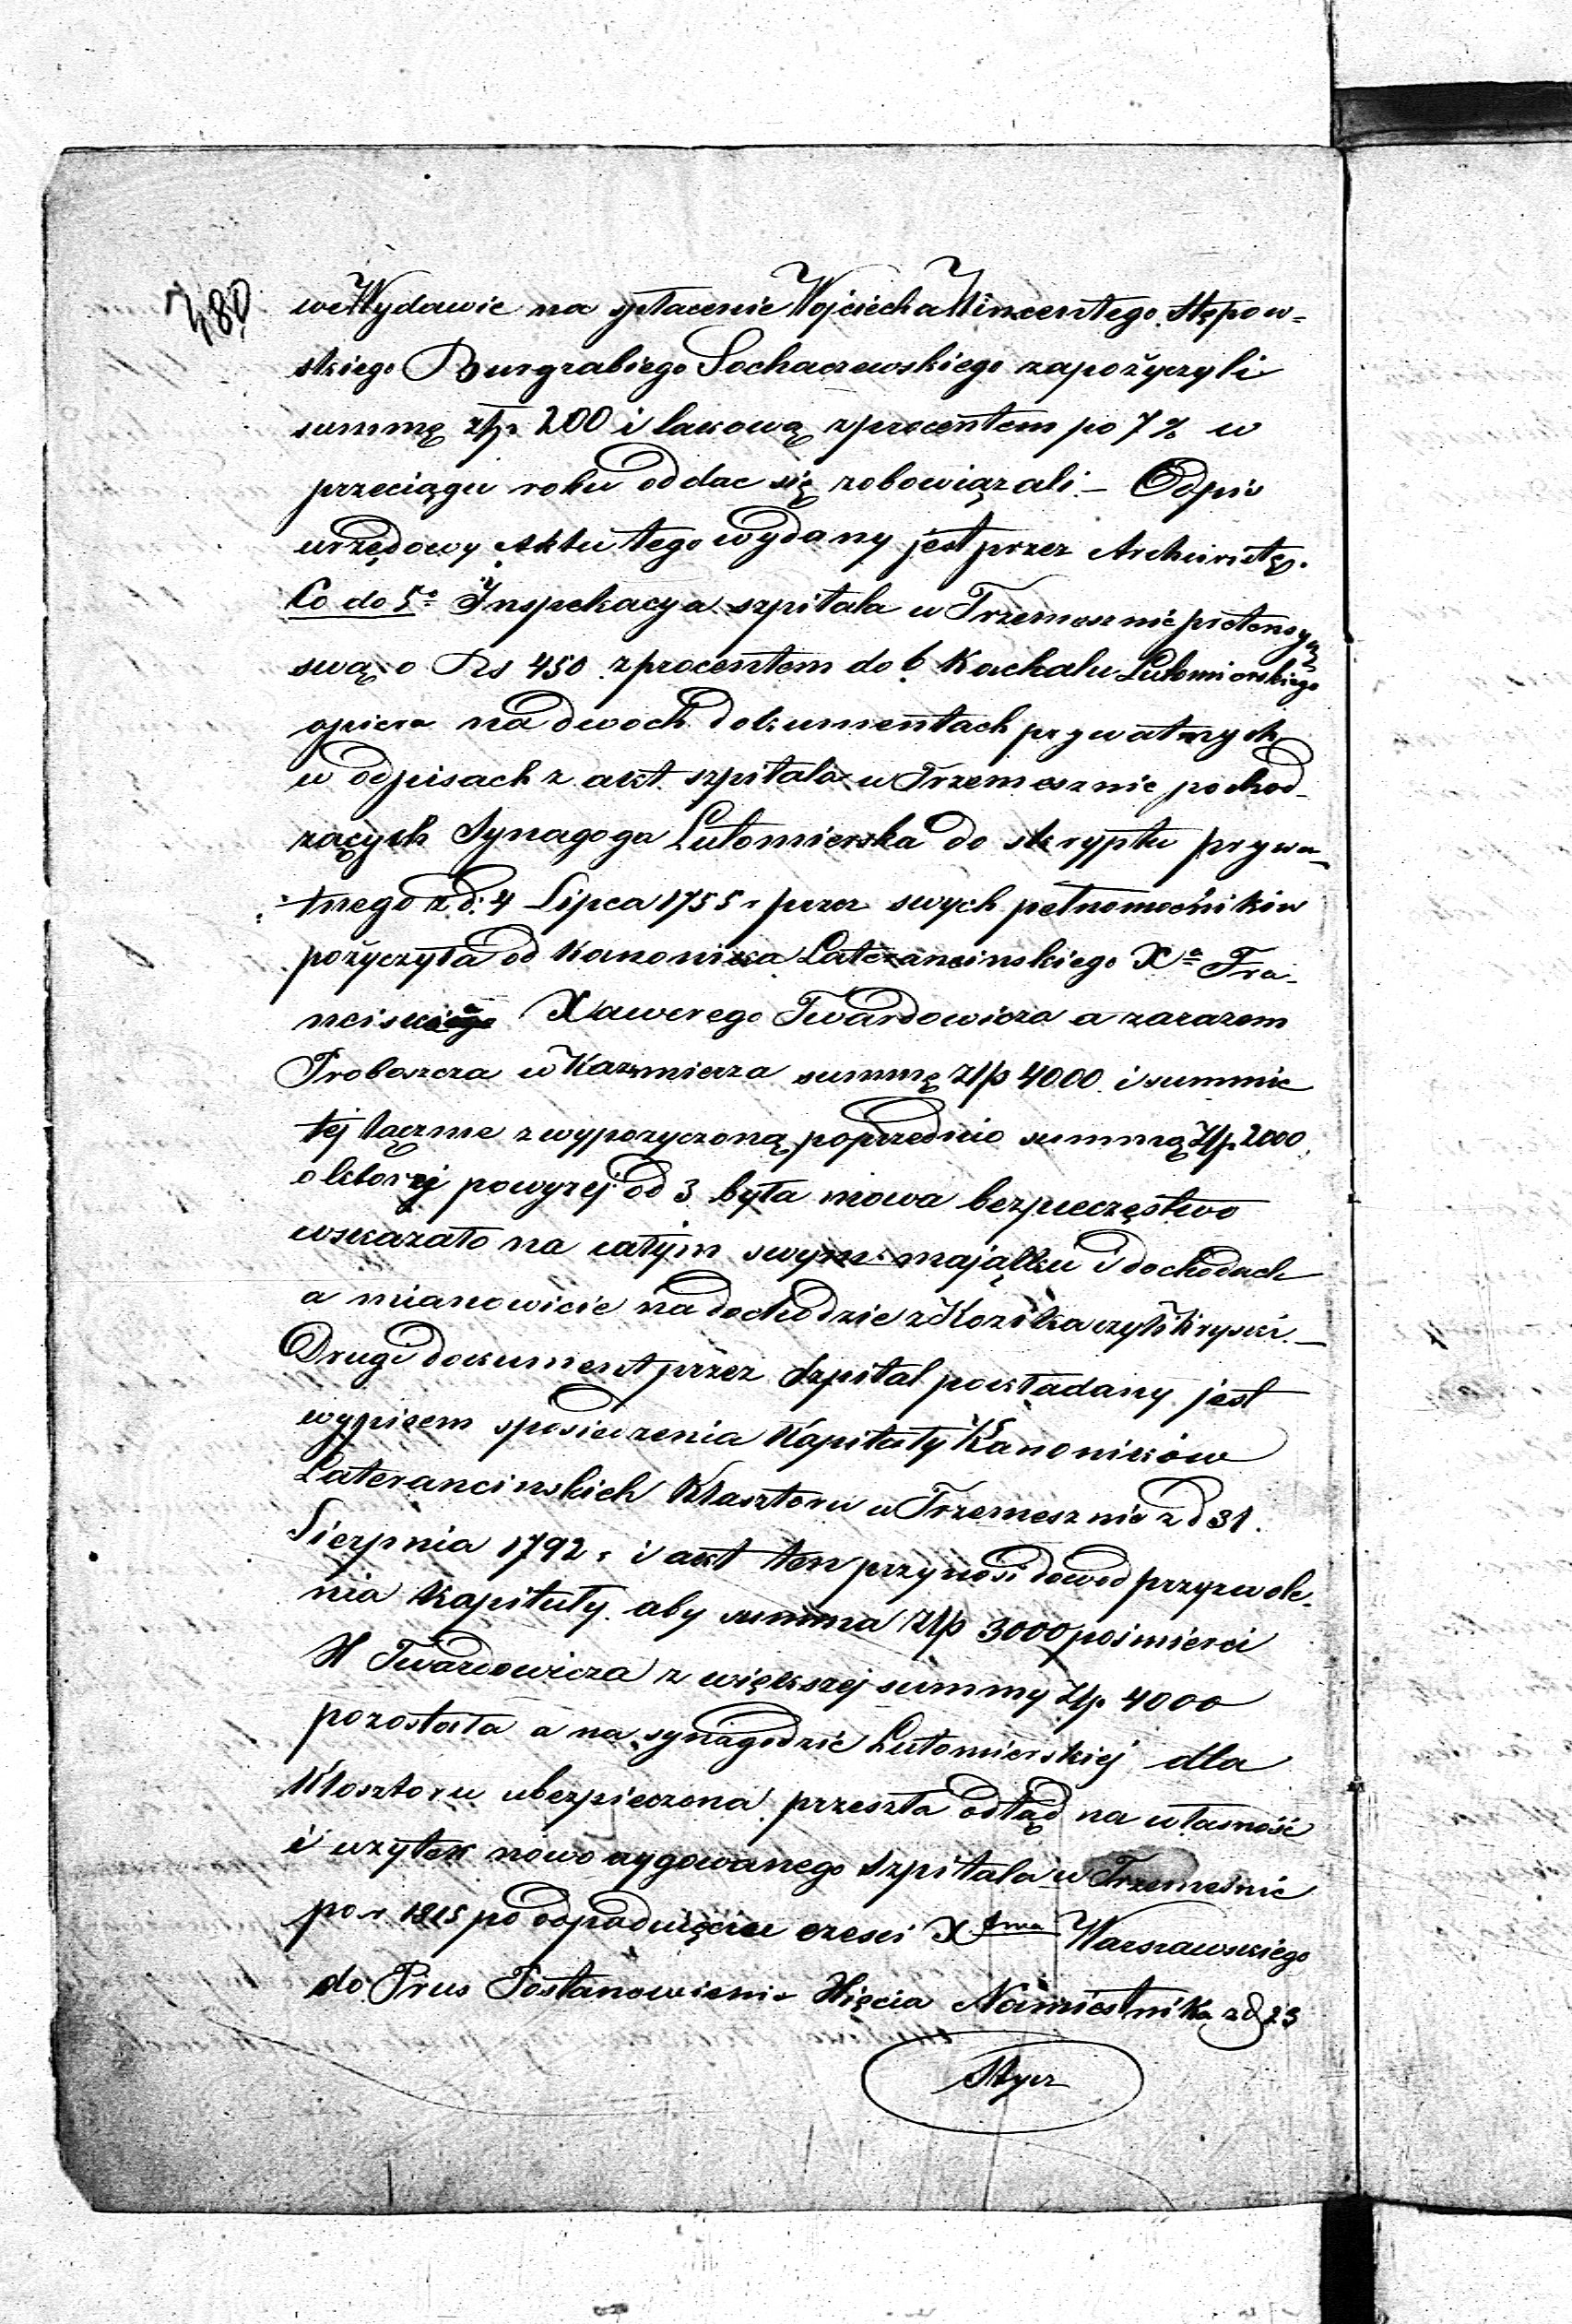 380
we Wydawie na spłacenie Wojciecha Wincentego Stępow-
skiego Burgrabiego Sochaczewskiego zapożyczyli
summę złp. 200 i takową z procentem po 7 % w
przeciągu roku oddac się zobowiązali. – Odpis
urzędowy Aktu tego wydany jest przez Archiwistę.
Co do 5º Inspekcya szpitala w Trzemesznie pretensyą
swą o Rs 450 z procentem do b. Kachalu Lutomierskiego
opiera na dwoch dokumentach prywatnych
w odpisach z akt szpitala w Trzemesznie pochod-
zących Synagoga Lutomierska do skryptu prywa-
tnego z d. 4 Lipca 1755 r przez swych pełnomocników
pożyczyła od Kanonika Lateraneinskiego Xa Fra-
nciszka Xawerego Twardowicza a zarazem
Proboszcza w Kazmierza summę Złp 4000 i summie
tej łącznie z wypożyczoną poprzednio summą Złp. 2000
o ktorej powyżej od 3 była mowa bezpieczęstwo
wskazało na całym swym majątku i dochodach
a mianowicie na dochodzie z Kozika czyli Kryski. –
Drugi dokument przez Szpital pokładany jest
wypisem z posiedzenia Kapituły Kanoników
Laterancinskich Klasztoru w Trzemesznie z d 31.
Sierpnia 1792 r i akt ten przynosi dowod przyzwole-
nia Kapituły aby summa Złp 3000 po śmierci
X Twardowicza z większej summy Złp. 4000
pozostała a na synagodzie Lutomierskiej dla
Klosztoru ubezpieczona przeszła odtąd na własność
i użytek nowo erygowanego Szpitala w Trzemesnie
po r 1815 po odpadnięciu czesci X twa Warszawskiego
do Prus Postanowienie Xięcia Namiestnika z d 23